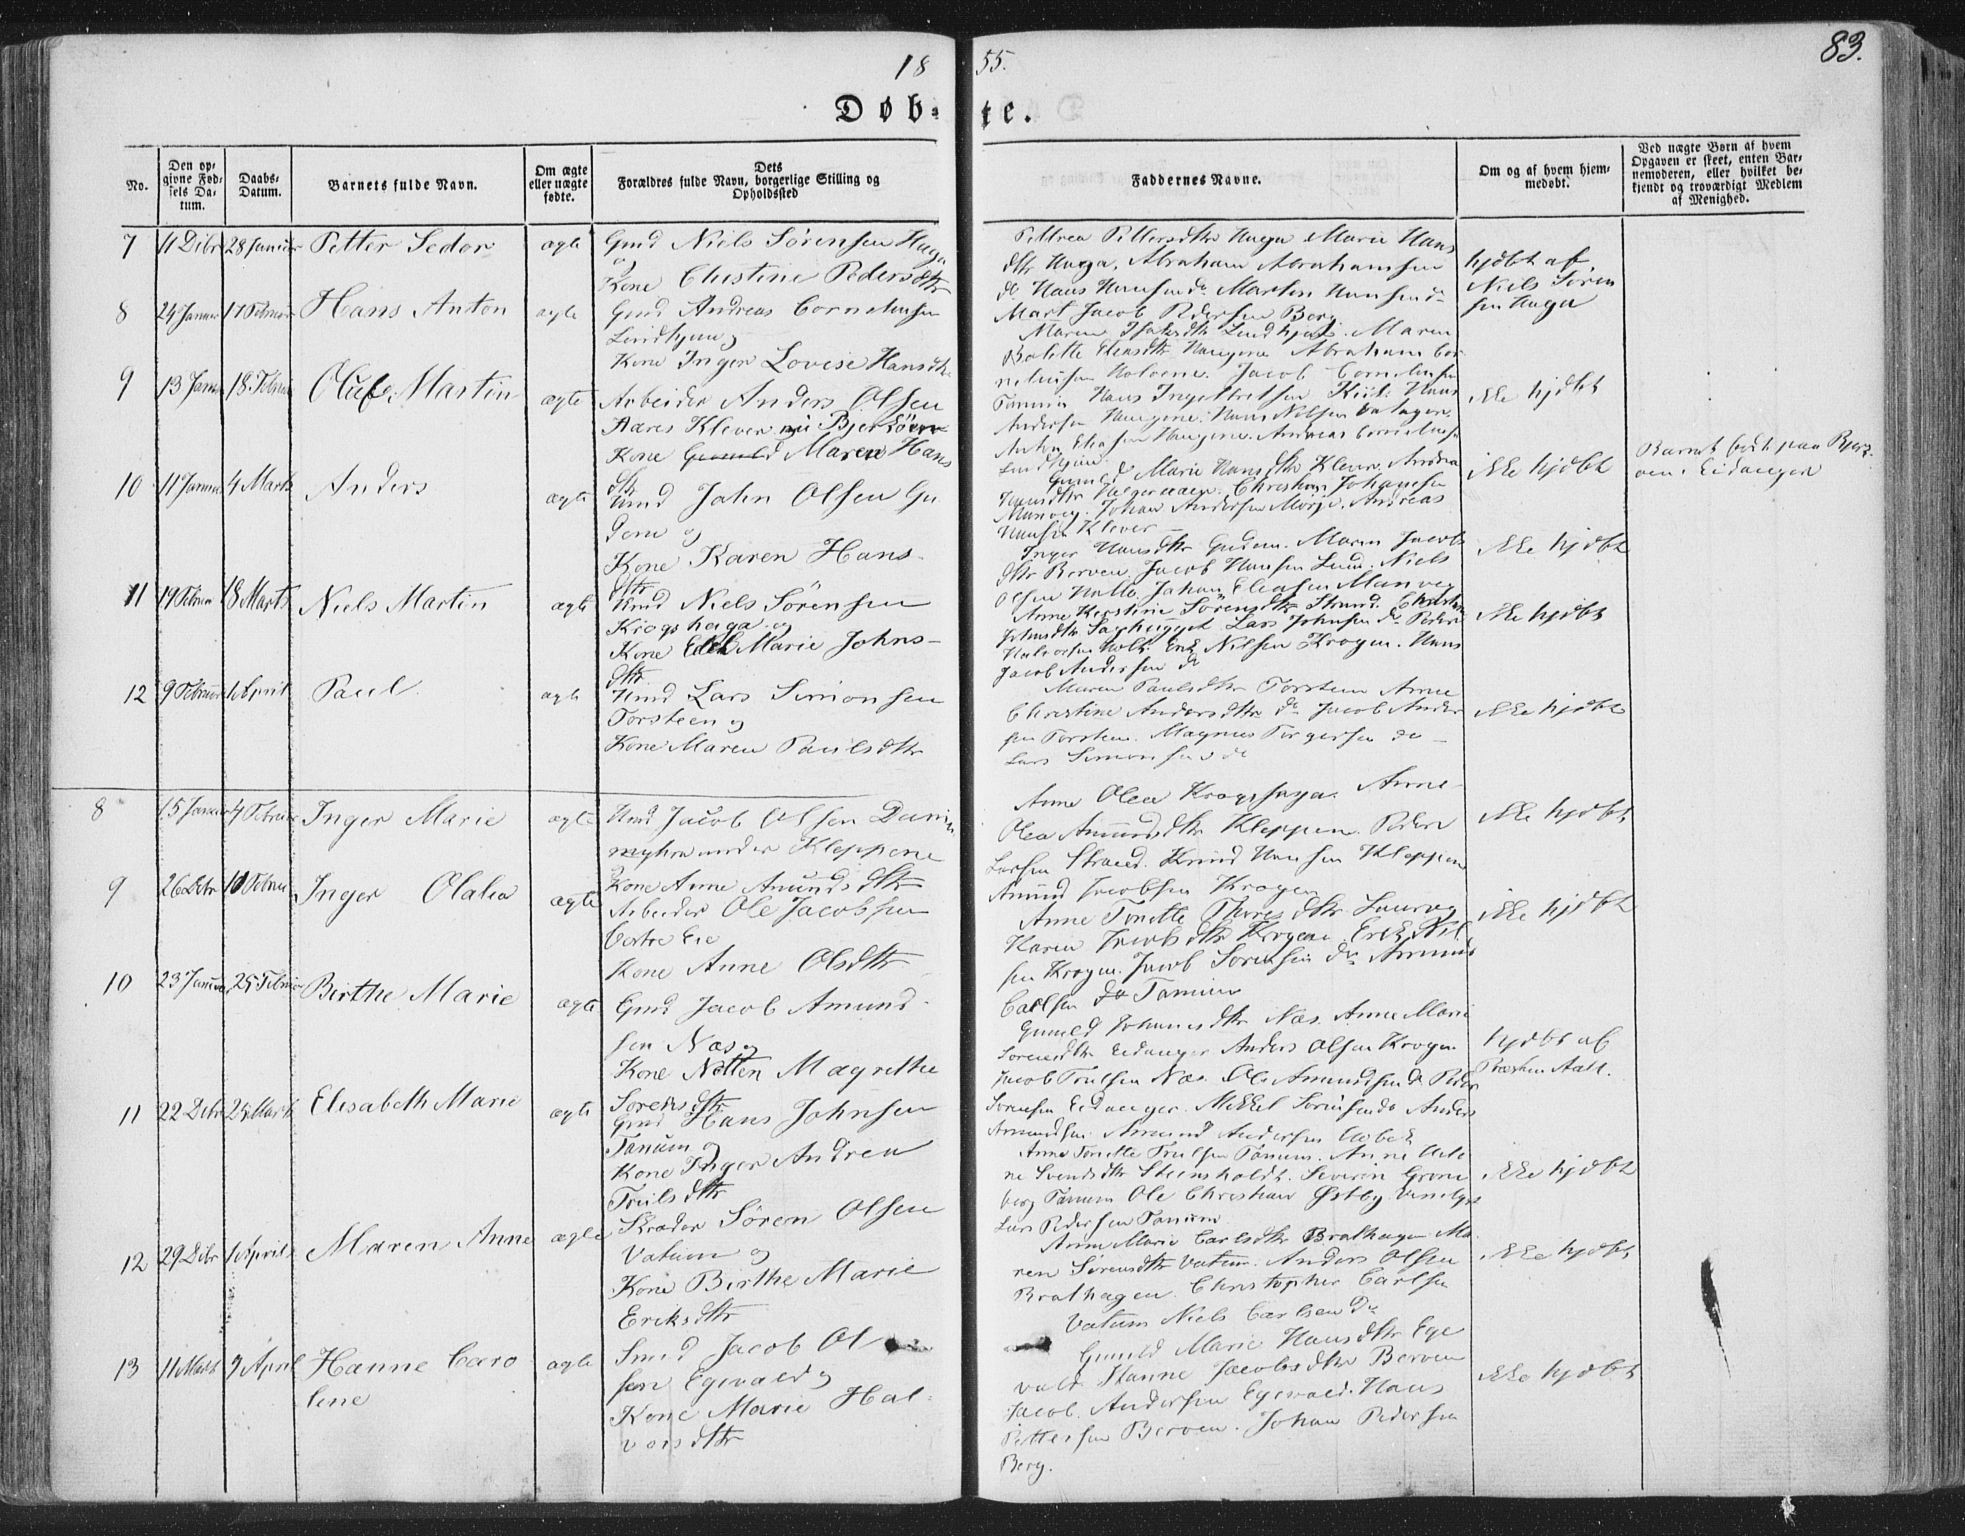 18 55.
83.
Døb- te.
No.
Den op-
givne Fød-
sels Da-
tum.
Daabs-
Datum.
Barnets fulde Navn.
Om ægte
eller uægte
fødte.
Dets
Forældres fulde Navn, borgerlige Stilling og
Opholdssted
Faddernes Navne.
Om og af hvem hjem-
medøbt.
Ved uægte Børn af hvem
Opgaven er skeet, enten Bar-
nemoderen, eller hvilket be-
kjendt og troværdigt Medlem
af Menighed.
7 11 Dcbr 28 Januar Petter Sedor ægte Gmd Niels Sørensen Haga
og
Kone Christine Pedersdtr
Pettrea Pettersdtr Haga Marie Hans
dtr Haga, Abraham Abrahamsen
do Hans Hansen do Martin Hansen do
Mart Jacob Pedersen Berg
hjdbt af
Niels Søren
sen Haga
8 24 Januar 17 Februar Hans Anton ægte Gmd Andreas Cornelnsen
Lindhjem og
Kone Inger Lovise Hansdtr
Maren Isaksdtr Lindhjem. Maren
Bolette Eliasdtr Haugene Abraham Cor
nelius Jacob Cornelnsen
Tanum
ikke hjdbt
9 13 Janua 18 Februar Oluf Martin ægte Arbeider Anders Olsen
Aares Klever nu Bjerkøen
Kone Gunild Maren Hans
dtr
Hans Ingebretsen Hans
Andersen Haugene. Hans Nilsen
Anton Eliasen Haugene. Andreas Cornelnsen
Lindhjem.
Gunild Marie Hansdtr Klever. Andrea
Hansdtr Christian Johansen
Manvig. Johan Andersen Andreas
Hansen Klever
ikke hjdbt
Barnet født paa Bjerk
øen i Eidanger
10 11 Janua 4 Marts Anders ægte Gmd John Olsen Gu
dem og
Kone Karen Hans
dtr
Inger Hansdtr Gudem. Maren Jacobs
dtr Berven Jacob Hansen Lund. Niels
Olsen Johan Eliasen Manvig
ikke hjdbt
11 19 Februar 18 Marts Niels Martin ægte Gmd Niels Sørensen
Krogshaga og
Kone Edel Marie Johns-
dtr.
Anne Kirstine Sørensdtr Strand. Christine
Johnsdtr Lars Johnsen do Peder
Halvorsen Holt. Erik Nilsen Krogen. Hans
Jacob Andersen do
ikke hjdbt
12 9 Februar 1 April Paul ægte Gmd Lars Simonsen
Torsteen og
Kone Maren Paulsdtr
Maren Paulsdtr Torsteen Anne
Christine Andersdtr do Jacob Ander
sen Torsteen. Magnus Torgersen do -
Lars Simonsen do
ikke hjdbt
8 15 Januar 4 Februar Inger Marie ægte Gmd Jacob Olsen Dam
myhra under Kleppene
Kone Anne Amundsdtr
Anne Olea Krogshaga Anne
Olea Amundsdtr Kleppen. Peder
Larsen Strand. Knud Hansen Kleppen
Amund Jacobsen Krogen
ikke hjdbt
9 26 Dcbr 10 Februar Inger Olalia ægte Arbeider Ole Jacobsen
Østre Eie
Kone Anne Olsdtr
Anne Tonette Thoresdtr Laurvig
Karen Jacobsdtr Krogen Erik Nil
sen Krogen. Jacob Sørensen do Amund
Carlsen do Tanum
ikke hjdbt
10 23 Januar 25 Februar Birthe Marie ægte Gmd Jacob Amund-
sen Næs og
Kone Netten Magrethe
Sørensdtr
Gunild Johannesdtr Næs. Anne Marie
Sørensdtr Eidanger Anders Olsen Krogen
Jacob Trulsen Næs. Ole Amundsen do Peder
Sørensen Eidanger. Mikkel Sørensen do Anders
Amundsen. Amund Andersen
hjdbt af
Præsten Aall.
11 22 Dcbr 25 Marts Elisabeth Marie ægte Gmd Hans Johnsen
Tanum og
Kone Inger Andrea
Trulsdtr
Anne Tonette Trulsen Tanum. Anne Hele
ne Svendsdtr Steensholdt. Severin Grone
berg Tanum Ole Christian Østby
Lars Pedersen Tanum
ikke hjdbt
12 29 Dcbr 1 April Maren Anne ægte Skræder Søren Olsen
Vatum og
Kone Birthe Marie
Eriksdtr
Anne Marie Carlsdtr Brathagen Ma
ren Sørensdtr Vatum. Anders Olsen
Brathagen. Christopher Carlsen
Vatum Niels Carlsen do
ikke hjdbt
13 11 Marts 9 April Hanne Caro
line
ægte Smed Jacob Ol
sen Egevald og
Kone Marie Hal-
vorsdtr
Gunild Marie Hansdtr Ege
vald. Hanne Jacobsdtr Berven
Jacob Andersen Egevald. Hans
Pettersen Berven. Johan Pedersen
Berg.
ikke hjdbt